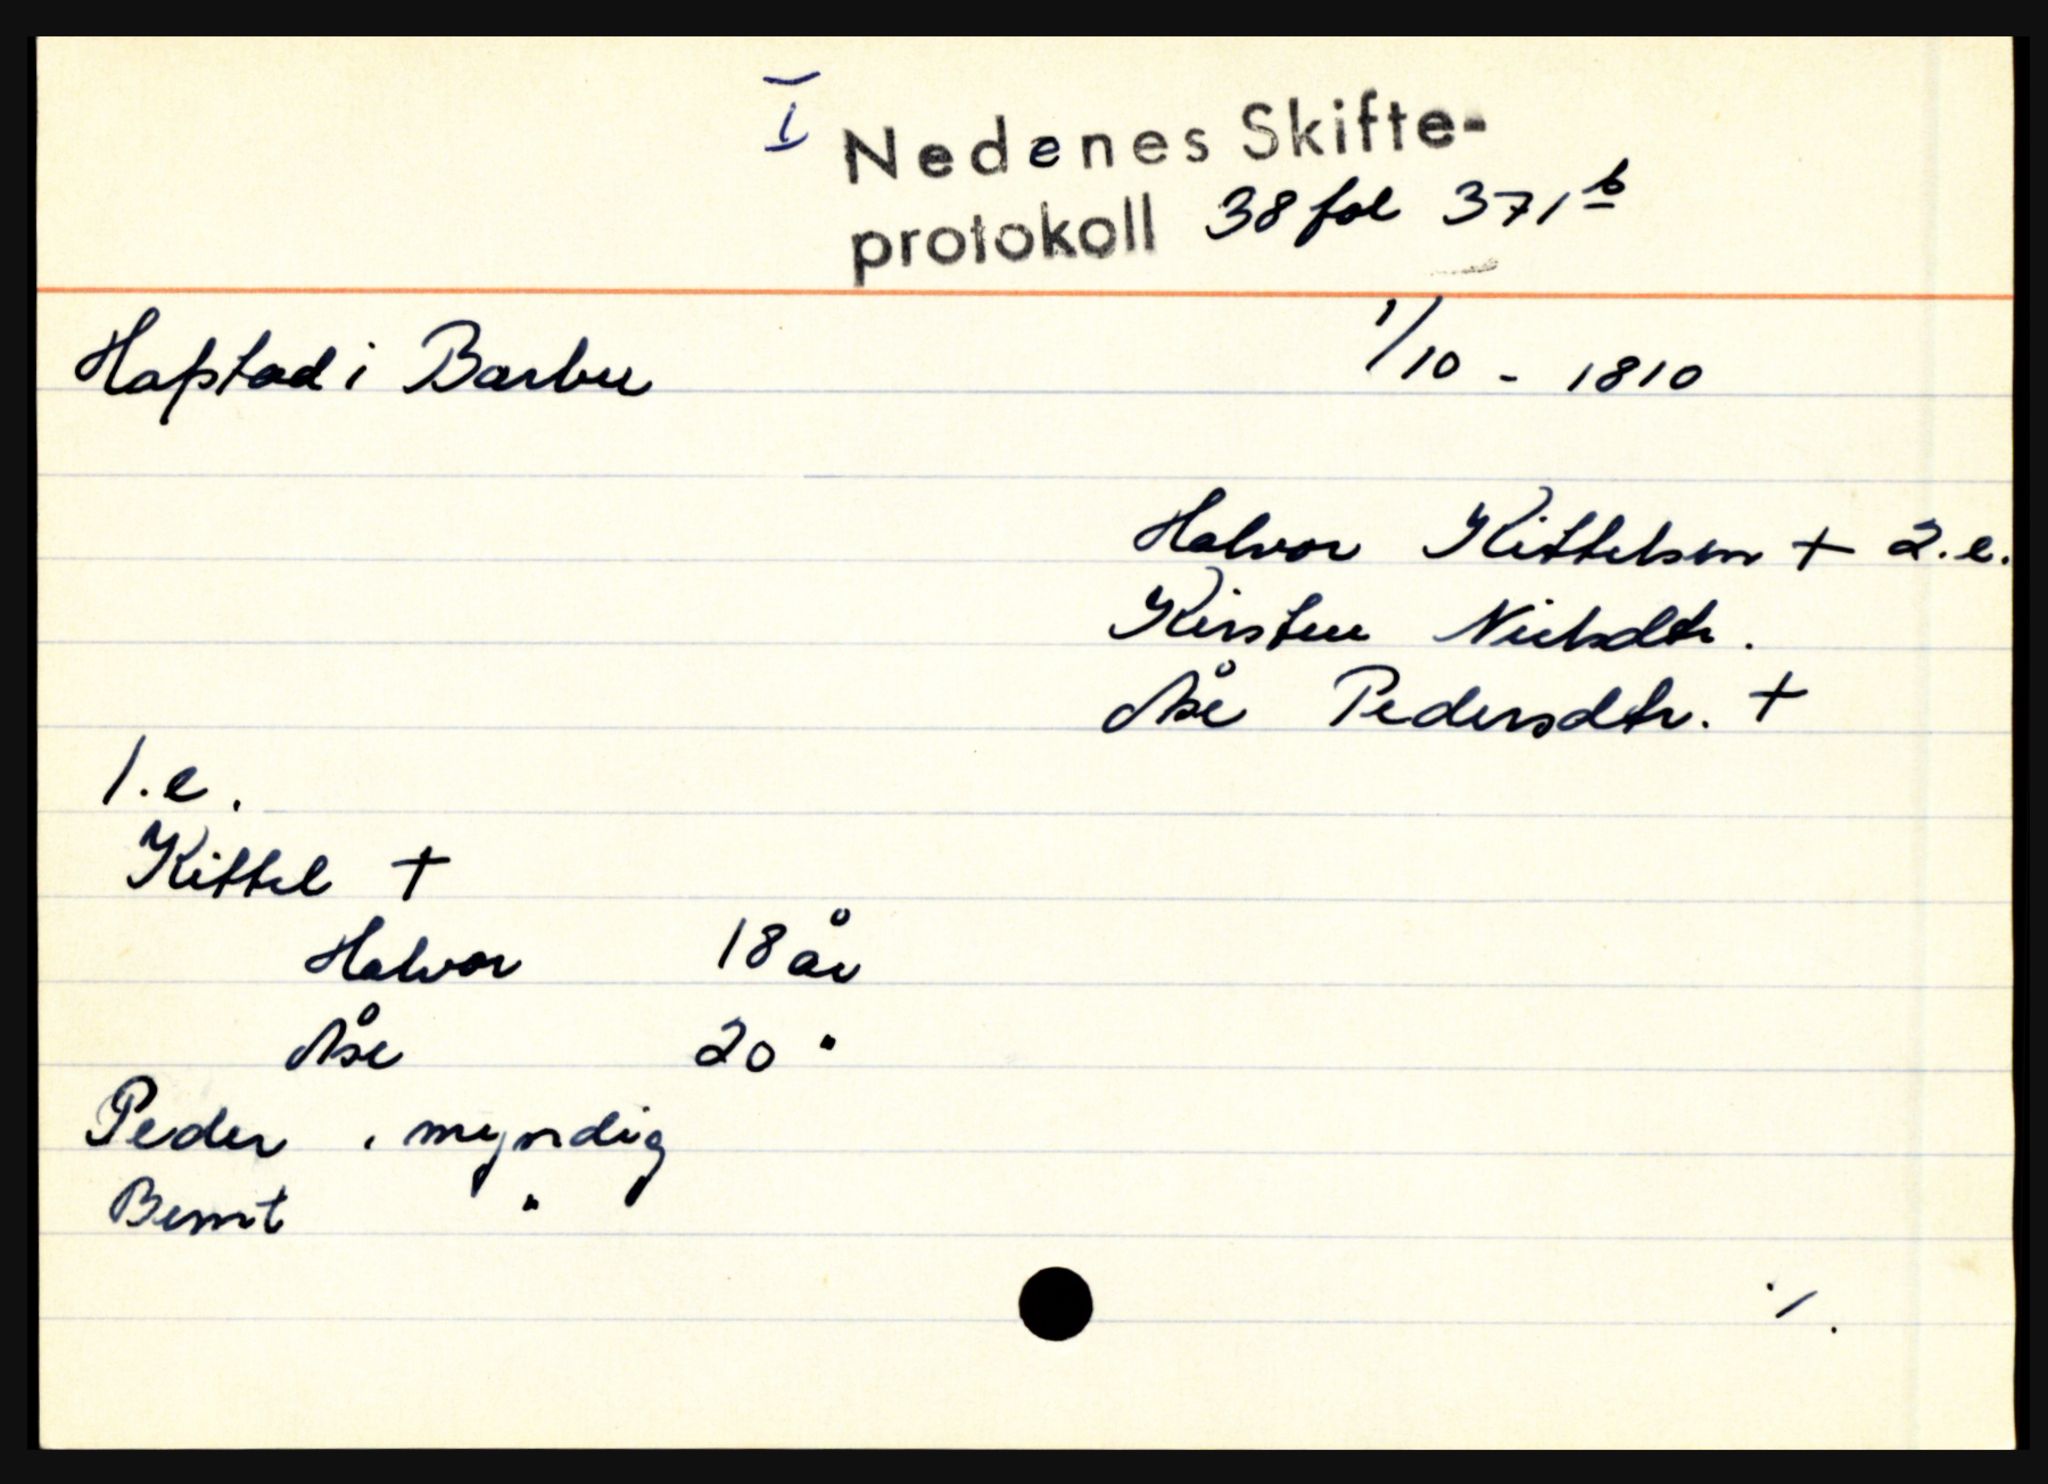 I Nedenes Skifte-
protokoll 38 fol 371 b
Haſstad i Barbu 1/10 - 1810
Halvor Kittelsen + 2.e.
Kirsten Nielsdtr.
Åse Pedersdtr. +
1.e.
Kittel +
Halvor 18 år
Åse 20 "
Peder, myndig
Bernt "
./.